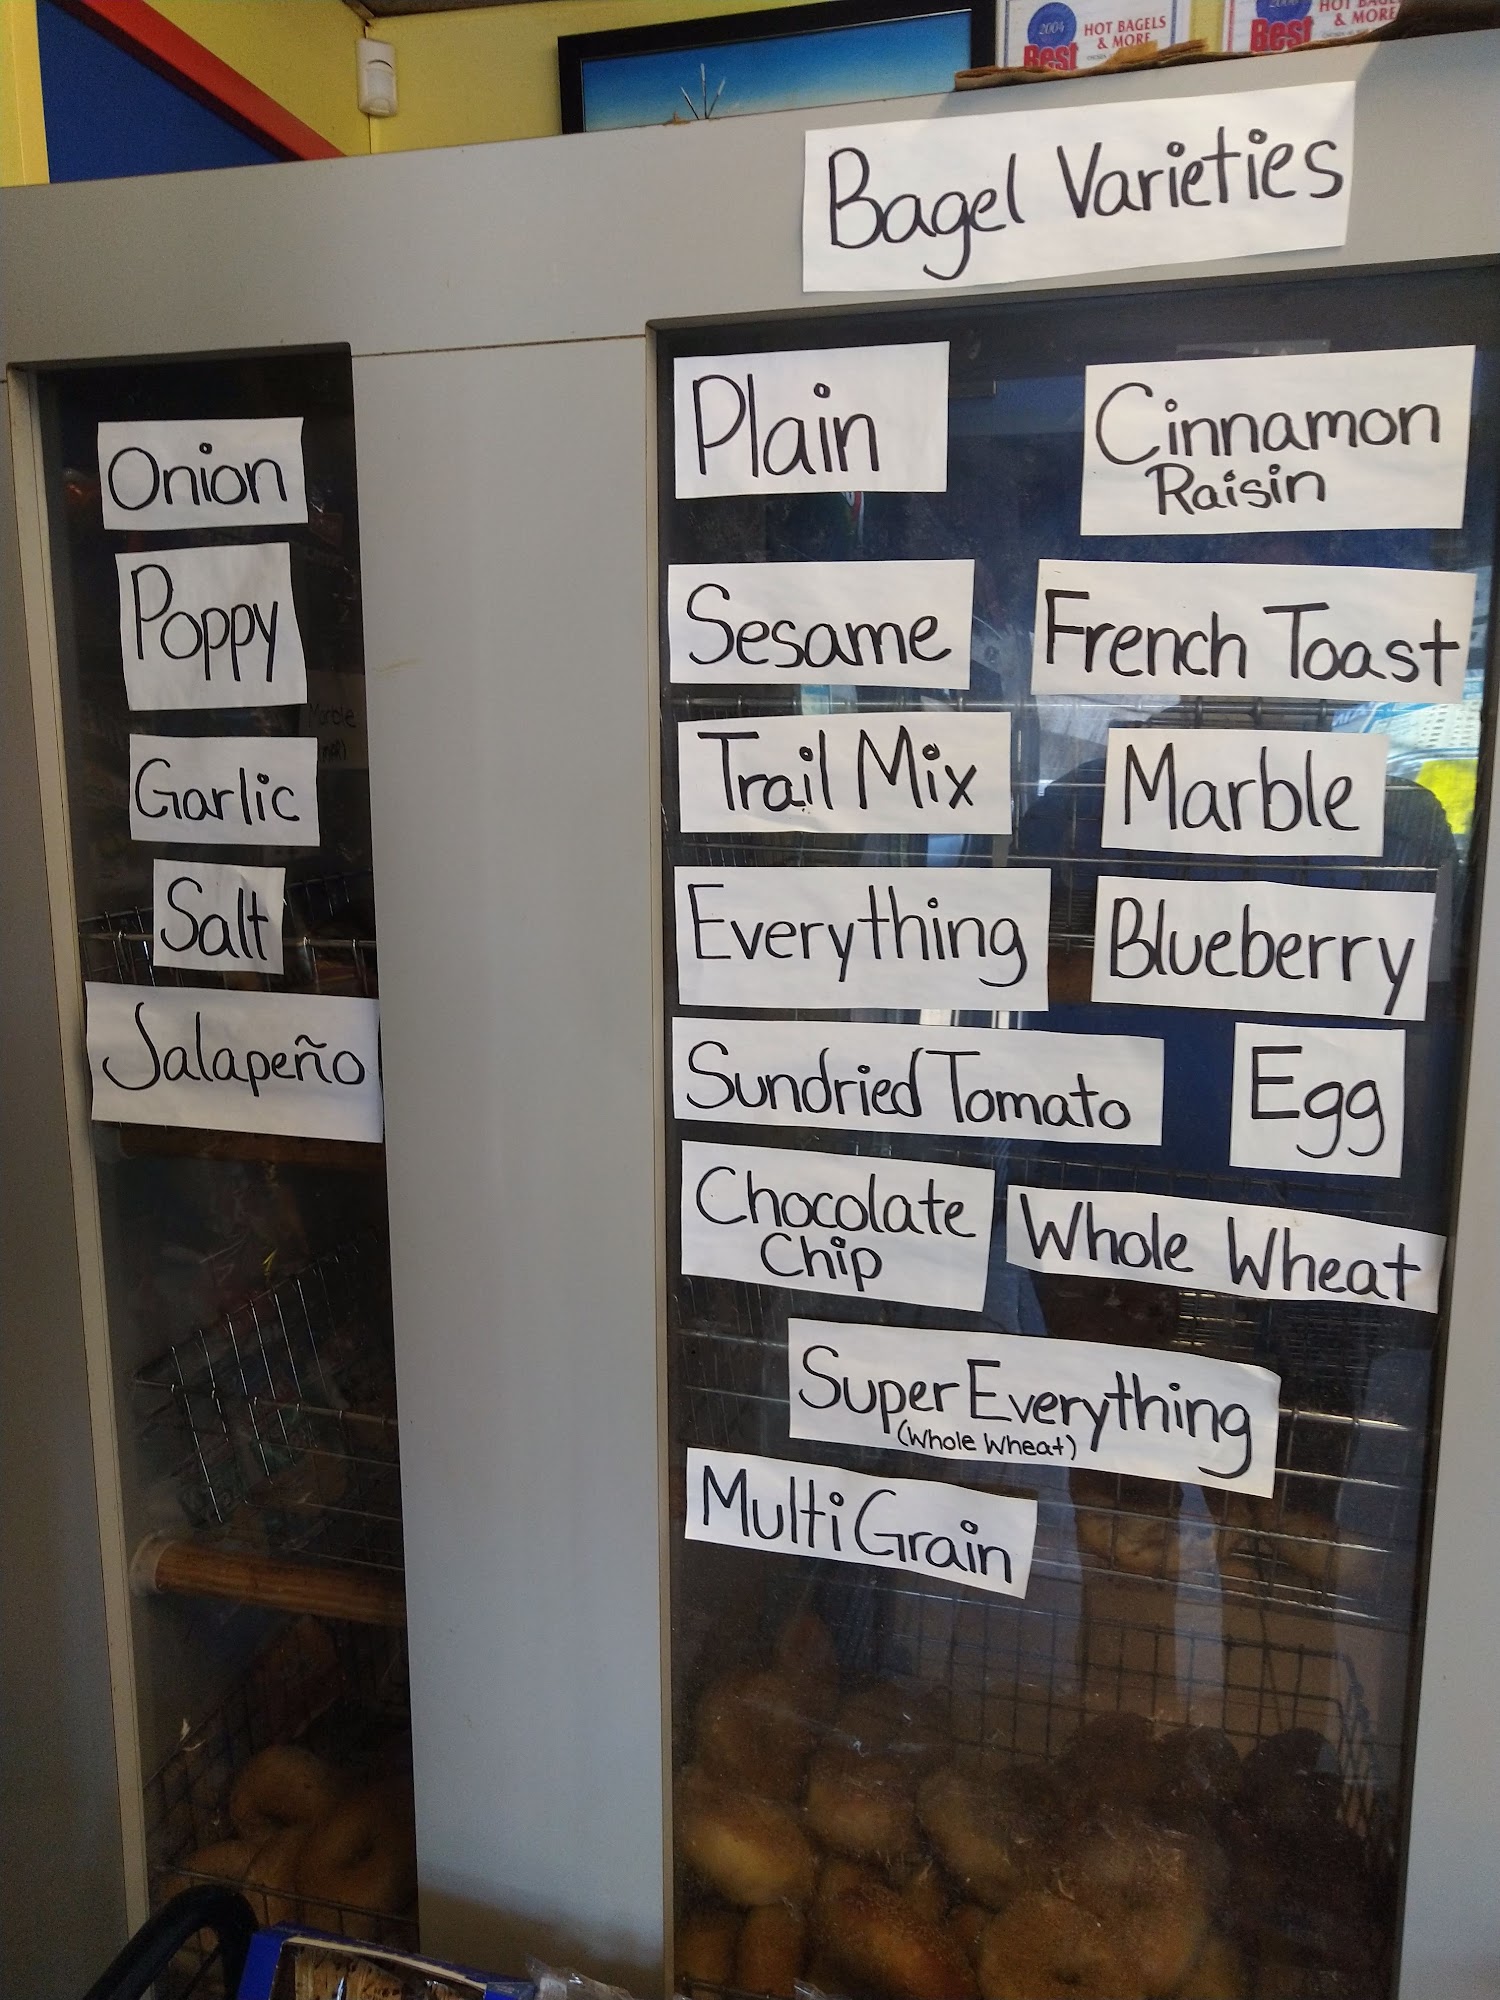 2004
Best
HOT BAGELS
& MORE
Best
HOT
& MORE
Bagel Varieties
Onion
Poppy
Garlic
Salt
Jalapeño
Plain
Cinnamon
Raisin
Sesame
French Toast
Trail Mix
Marble
Everything
Blueberry
Sundried Tomato
Egg
Chocolate
Chip
Whole Wheat
Super Everything
(Whole Wheat)
Multi Grain
Marble